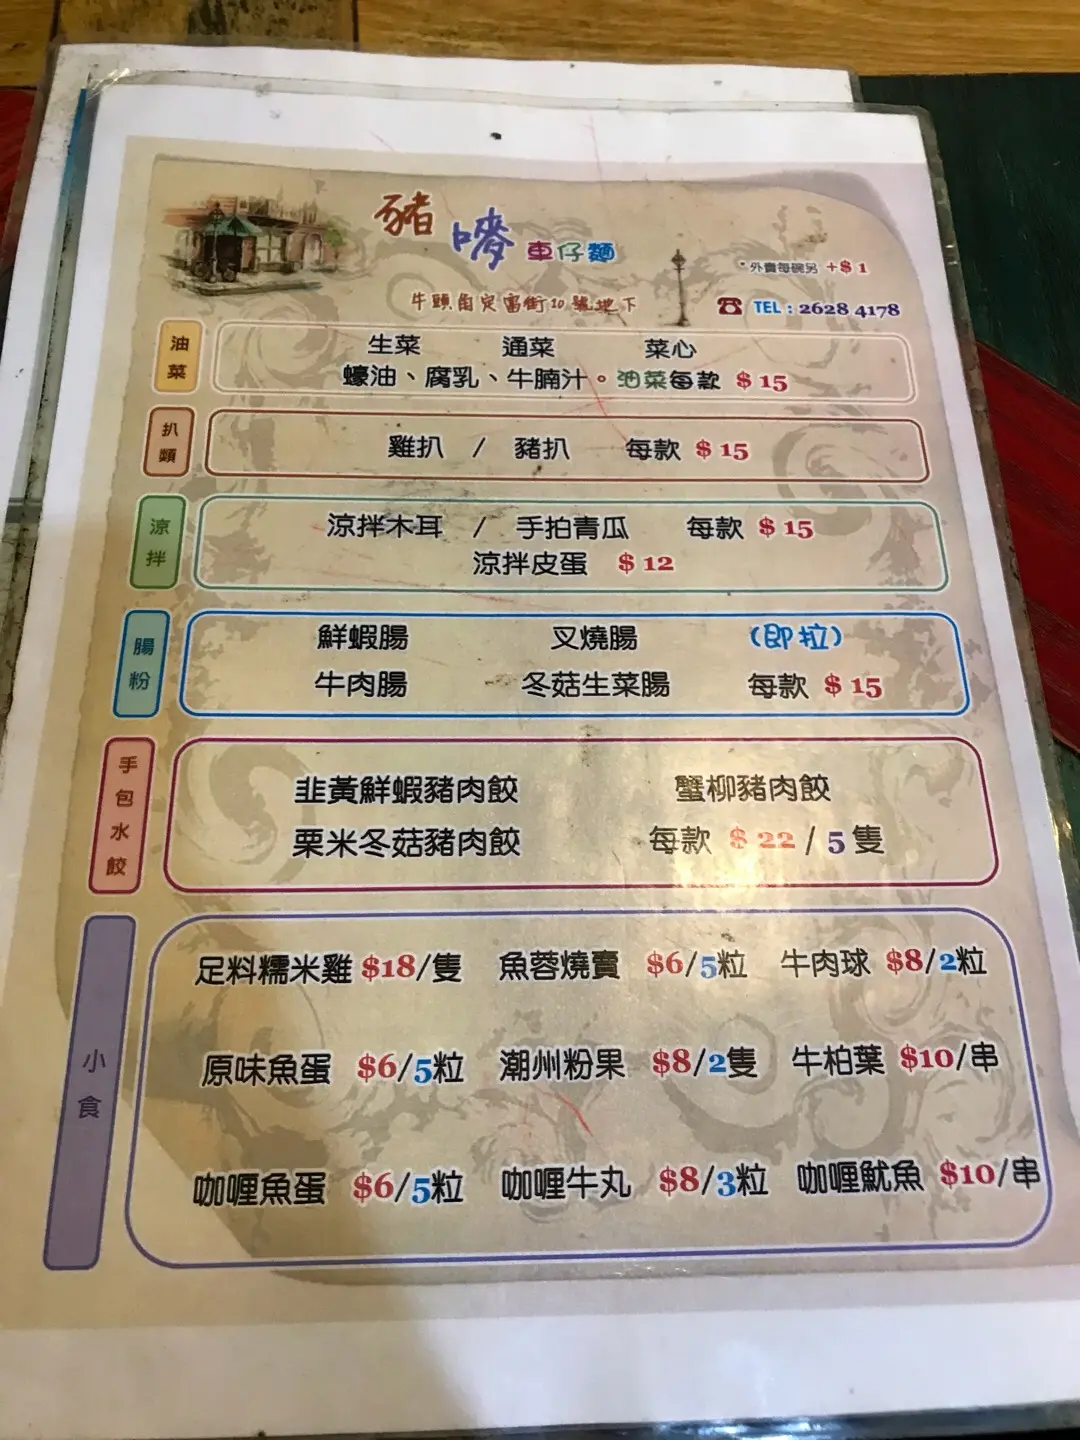 豬嘜車仔麵
*外賣每碗另 +$1
牛頭角定富街10號地下
☎ TEL : 2628 4178
油菜
生菜 通菜 菜心
蠔油、腐乳、牛腩汁。油菜每款 $15
扒類
雞扒 / 豬扒 每款 $15
涼拌
涼拌木耳 / 手拍青瓜 每款 $15
涼拌皮蛋 $12
腸粉
鮮蝦腸 叉燒腸 (即拉)
牛肉腸 冬菇生菜腸 每款 $15
手包水餃
韭黃鮮蝦豬肉餃 蟹柳豬肉餃
栗米冬菇豬肉餃 每款 $22/5隻
小食
足料糯米雞 $18/隻 魚蓉燒賣 $6/5粒 牛肉球 $8/2粒
原味魚蛋 $6/5粒 潮州粉果 $8/2隻 牛柏葉 $10/串
咖喱魚蛋 $6/5粒 咖喱牛丸 $8/3粒 咖喱魷魚 $10/串